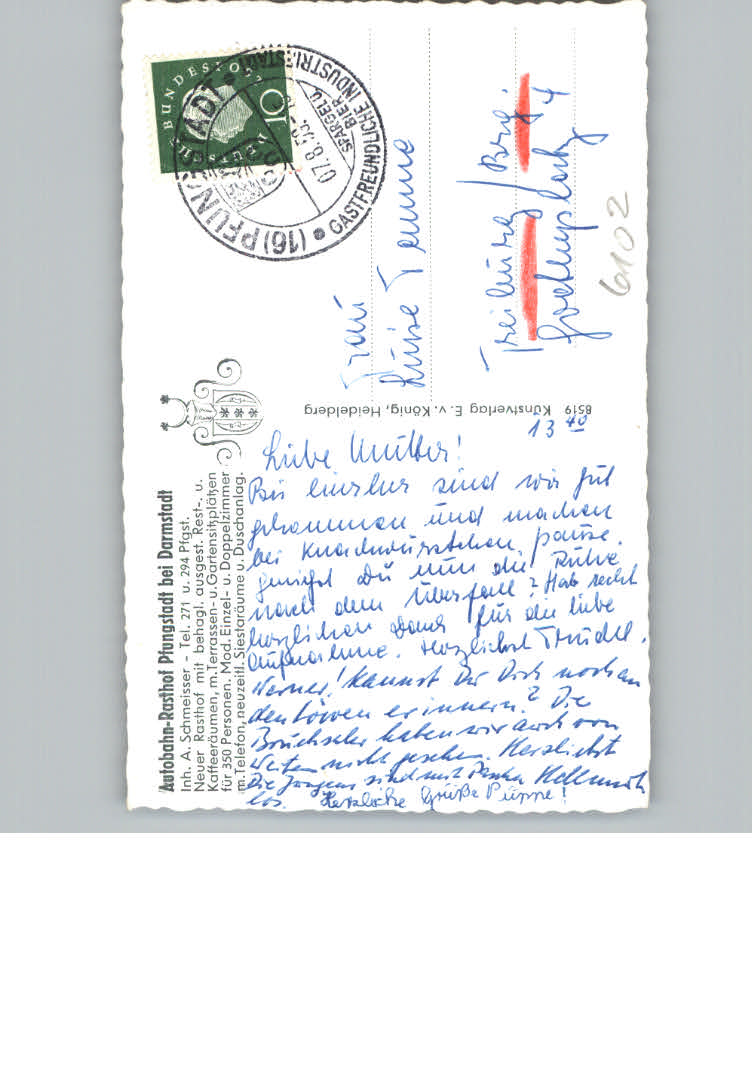 Autobahn-Rasthof Pfungstadt bei Darmstadt
Inh. A. Schmeisser - Tel. 271 u. 294 Pfgst.
Neuer Rasthof mit behagl. ausgest. Rest-. u.
Kaffeeräumen, m. Terrassen- u. Gartensitzplätzen
für 350 Personen. Mod. Einzel- u. Doppelzimmer
m. Telefon, neuzeitl. Siestaräume u. Duschanlag.
8519 Kunstverlag E. v. König, Heidelderg
BUNDESPOST
10
(16) PFUNGSTADT
07.8.59
SPARGEL
BIER
GASTFREUNDLICHE INDUSTRIESTADT
Frau
Luise Temme
Freiburg / Brsg.
Goetheplatz 4
6102
13 40
Liebe Mutter!
Bis hierher sind wir gut
gekommen und machen
bei Knackwürstchen pause.
genießt Du nun die Ruhe
nach dem Überfall? Hab recht
herzlichen Dank für die liebe
Aufnahme. Herzlichst Trudel.
Werner! Kannst Du Dich noch an
den Löwen erinnern? Die
Bruchsaler haben wir auch von
Weitem nicht gesehen. Herzlichst
Die Jungens sind mit Hellmuth
los. Herzliche Grüße Puppe!